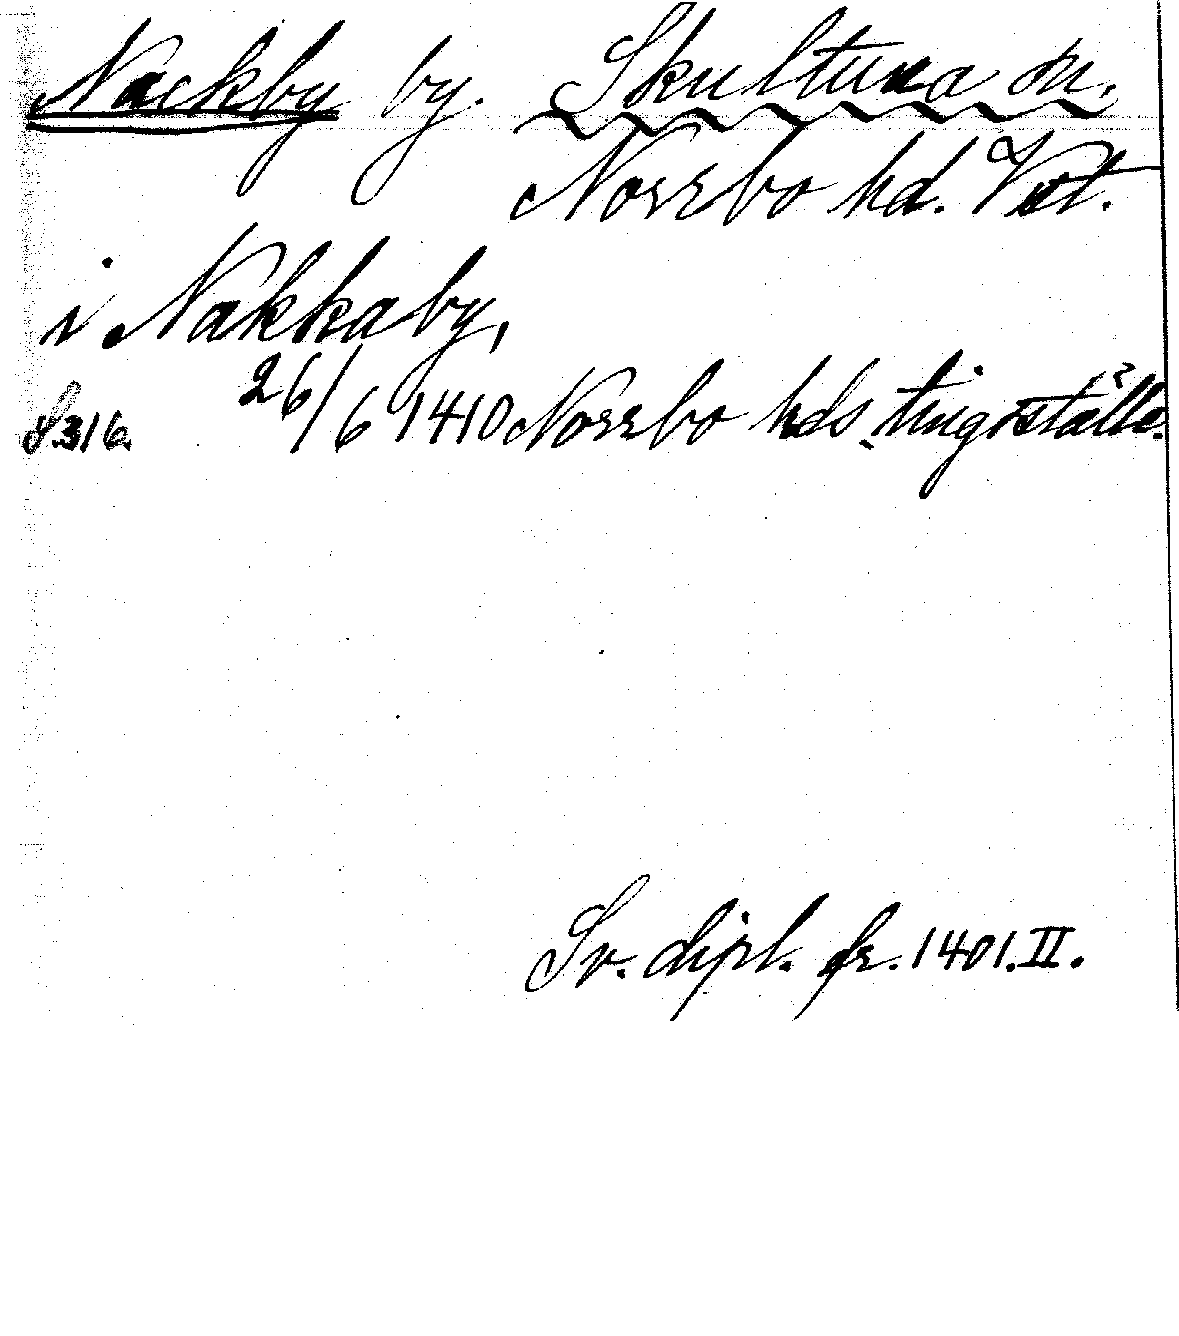 Nackby by. Skultuna sn.
Norrbo hd. Vst.
i Nakkaby,
26/6 1410 Norrbo hds tingsställe.
S. 316.
Sv. dipl. fr. 1401. II.